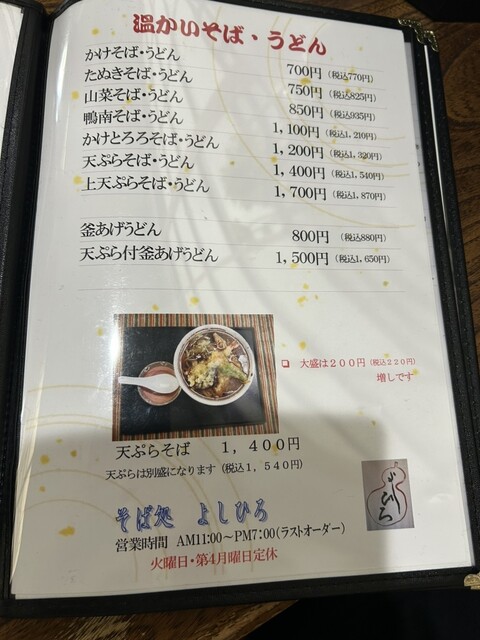 温かいそば・うどん
かけそば・うどん 700円 (税込770円)
たぬきそば・うどん 750円 (税込825円)
山菜そば・うどん 850円 (税込935円)
鴨南そば・うどん 1,100円 (税込1,210円)
かけとろろそば・うどん 1,200円 (税込1,320円)
天ぷらそば・うどん 1,400円 (税込1,540円)
上天ぷらそば・うどん 1,700円 (税込1,870円)
釜あげうどん 800円 (税込880円)
天ぷら付釜あげうどん 1,500円 (税込1,650円)
❏ 大盛は200円 (税込220円)
増しです
天ぷらそば 1,400円
天ぷらは別盛になります (税込1,540円)
そば処 よしひろ
営業時間 AM11:00～PM7:00(ラストオーダー)
火曜日・第4月曜日定休
よしひろ